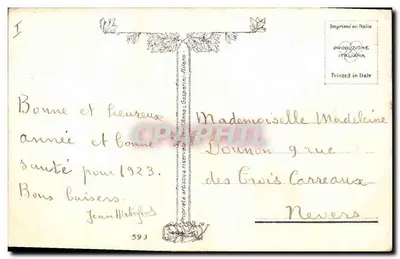 I
Imprimé en Italie
PRODUZIONE
ITALIANA
Printed in Italy
Bonne et heureuse
année et bonne
santé pour 1923.
Bons baisers.
Jean
Mademoiselle Madeleine
9 rue
des Trois Carreaux
Nevers
Proprietà artistica riservata
593
CPAPHIL